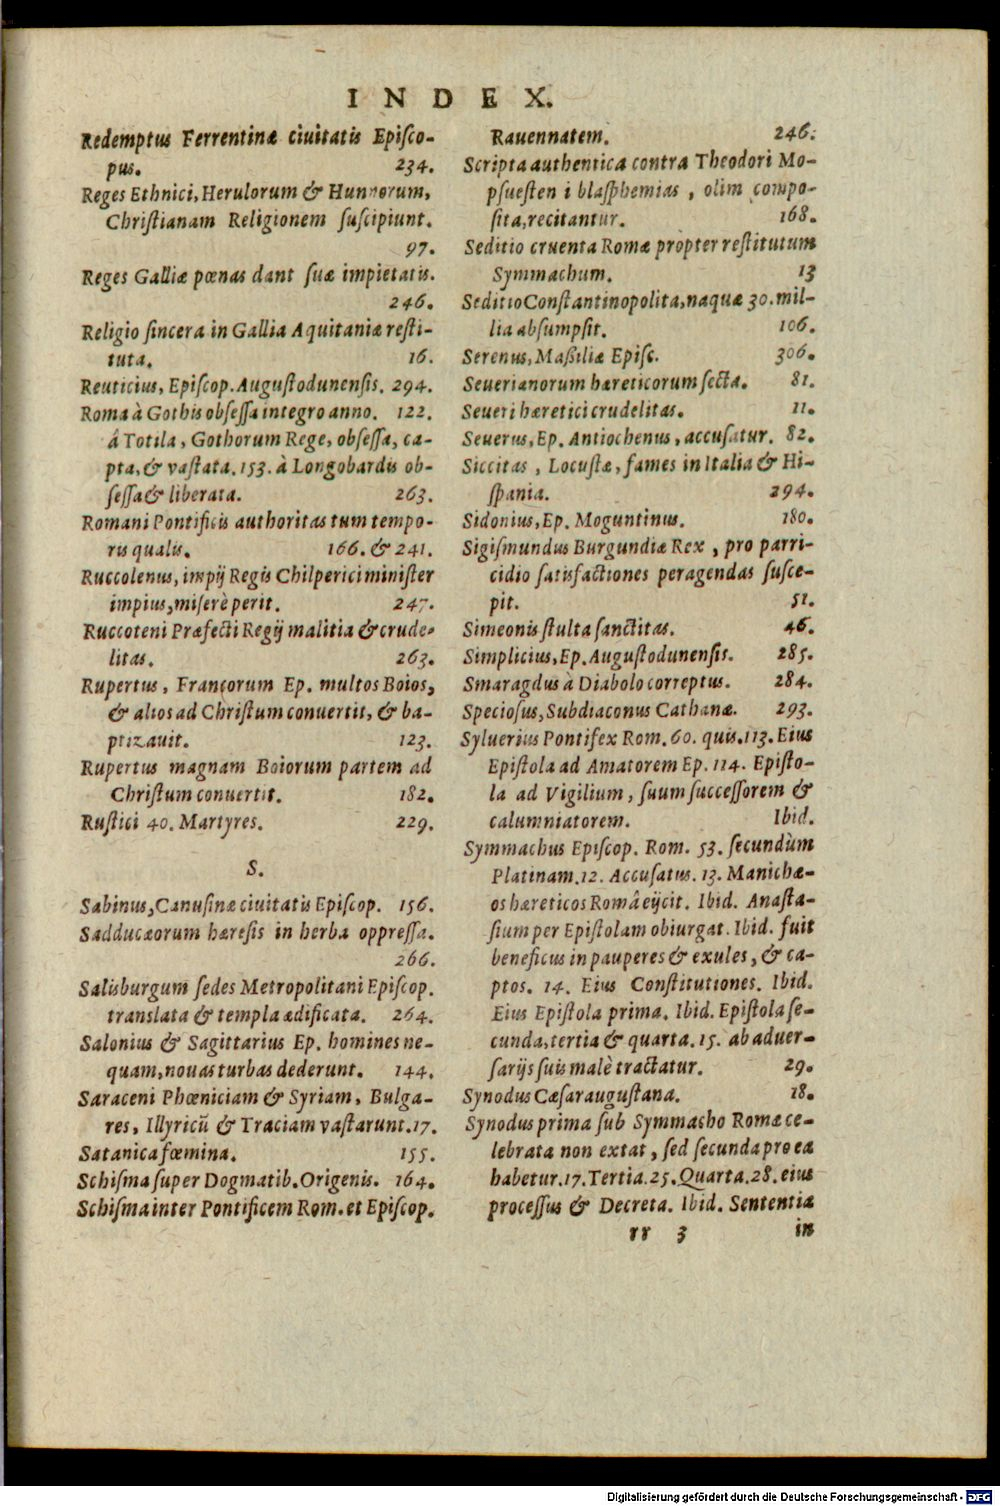 INDEX.
Redemptus Ferrentinæ ciuitatis Epiſco-
pus. 234.
Reges Ethnici, Herulorum & Hunnorum,
Chriſtianam Religionem ſuſcipiunt.
97.
Reges Galliæ pœnas dant ſuæ impietatis.
246.
Religio ſincera in Gallia Aquitaniæ reſti-
tuta. 16.
Reuticius, Epiſcop. Auguſtodunenſis. 294.
Roma à Gothis obſeſſa integro anno. 122.
â Totila, Gothorum Rege, obſeſſa, ca-
pta, & vaſtata. 153. à Longobardis ob-
ſeſſa & liberata. 263.
Romani Pontificis authoritas tum tempo-
ris qualis. 166. & 241.
Ruccolenus, impij Regis Chilperici miniſter
impius, miſerè perit. 247.
Ruccoteni Præfecti Regij malitia & crude-
litas. 263.
Rupertus, Francorum Ep. multos Boios,
& alios ad Chriſtum conuertit, & ba-
ptizauit. 123.
Rupertus magnam Boiorum partem ad
Chriſtum conuertit. 182.
Ruſtici 40. Martyres. 229.
S.
Sabinus, Canuſinæ ciuitatis Epiſcop. 156.
Sadducæorum hæreſis in herba oppreſſa.
266.
Salisburgum ſedes Metropolitani Epiſcop.
translata & templa ædificata. 264.
Salonius & Sagittarius Ep. homines ne-
quam, nouas turbas dederunt. 144.
Saraceni Phœniciam & Syriam, Bulga-
res, Illyricũ & Traciam vaſtarunt. 17.
Satanica fœmina. 155.
Schiſma ſuper Dogmatib. Origenis. 164.
Schiſma inter Pontificem Rom. et Epiſcop.
Rauennatem. 246.
Scripta authentica contra Theodori Mo-
pſueſten i blaſphemias, olim compo-
ſita, recitantur. 168.
Seditio cruenta Romæ pròpter reſtitutum
Symmachum. 13
Seditio Conſtantinopolita, na quæ 30. mil-
lia abſumpſit. 106.
Serenus, Maßiliæ Epiſc. 306.
Seuerianorum hæreticorum ſecta. 81.
Seueri hæretici crudelitas. 11.
Seuerus, Ep. Antiochenus, accuſatur. 82.
Siccitas, Locuſtæ, fames in Italia & Hi-
ſpania. 294.
Sidonius, Ep. Moguntinus. 180.
Sigiſmundus Burgundiæ Rex, pro parri-
cidio ſatisfactiones peragendas ſuſce-
pit. 51.
Simeonis ſtulta ſanctitas. 46.
Simplicius, Ep. Auguſtodunenſis. 285.
Smaragdus à Diabolo correptus. 284.
Specioſus, Subdiaconus Cathanæ. 293.
Syluerius Pontifex Rom. 60. quis. 113. Eius
Epiſtola ad Amatorem Ep. 114. Epiſto-
la ad Vigilium, ſuum ſucceſſorem &
calumniatorem. Ibid.
Symmachus Epiſcop. Rom. 53. ſecundùm
Platinam. 12. Accuſatus. 13. Manichæ-
os hæreticos Româ eijcit. Ibid. Anaſta-
ſium per Epiſtolam obiurgat. Ibid. fuit
beneficus in pauperes & exules, & ca-
ptos. 14. Eius Conſtitutiones. Ibid.
Eius Epiſtola prima. Ibid. Epiſtola ſe-
cunda, tertia & quarta. 15. ab aduer-
ſarijs ſuis malè tractatur. 29.
Synodus Cæſarauguſtana. 18.
Synodus prima ſub Symmacho Romæ ce-
lebrata non extat, ſed ſecunda pro ea
habetur. 17. Tertia. 25. Quarta. 28. eius
proceſſus & Decreta. Ibid. Sententiæ
rr 3 in
Digitalisierung gefördert durch die Deutsche Forschungsgemeinschaft - DFG